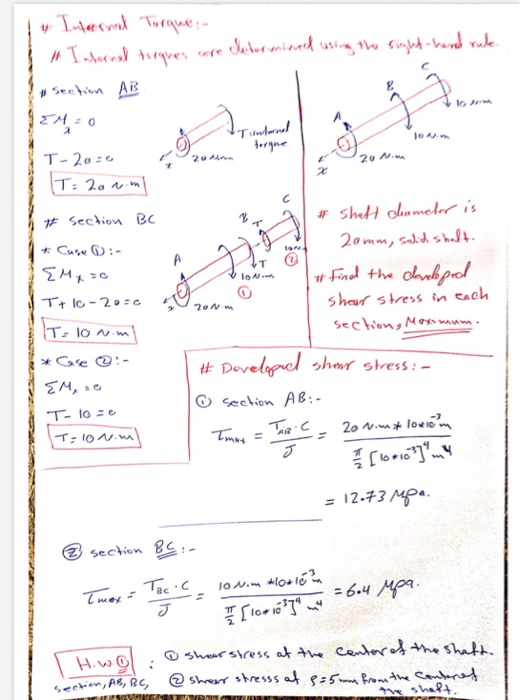 # Internal Torque:-
# Internal torques are determined using the right-hand rule.
# section AB
ΣM_x = 0
T - 20 = 0
T = 20 N.m
T internal torque
20 N.m
x
A
B
C
10 N.m
10 N.m
20 N.m
x
# section BC
* Case ①:-
ΣM_x = 0
T + 10 - 20 = 0
T = 10 N.m
A
B
T
C
T
10 N.m
10 N.m
①
②
20 N.m
x
# shaft diameter is
20mm, solid shaft.
# Find the developed
shear stress in each
section, Maximum.
* Case ②:-
ΣM_x = 0
T - 10 = 0
T = 10 N.m
# Developed shear stress:-
① section AB:-
τmax = T_AB · C / J = 20 N.m * 10*10^-3 m / π/2 [10*10^-3]^4 m^4
= 12.73 Mpa.
② section BC:-
τmax = T_BC · C / J = 10 N.m * 10*10^-3 m / π/2 [10*10^-3]^4 m^4 = 6.4 Mpa.
H.w① : ① shear stress at the center of the shaft.
section, AB, BC, ② shear stresss at ρ = 5mm from the center of
the shaft.